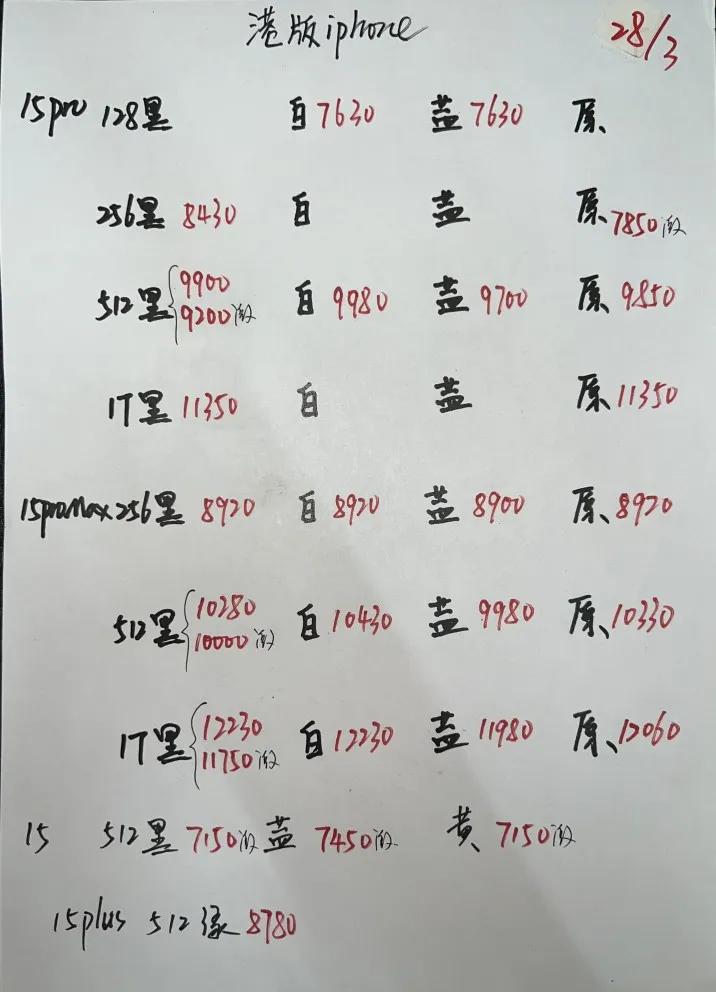 港版iphone 28/3
15pro 128黑 白7630 蓝7630 原
256黑 8430 白 蓝 原7850激
512黑{9900 白9980 蓝9700 原9850
9200激
1T黑 11350 白 蓝 原11350
15proMax256黑 8920 白8920 蓝8900 原8920
512黑{10280 白10430 蓝9980 原10330
10000激
1T黑{12230 白12230 蓝11980 原12060
11750激
15 512黑7150激 蓝7450激 黄7150激
15plus 512绿8780